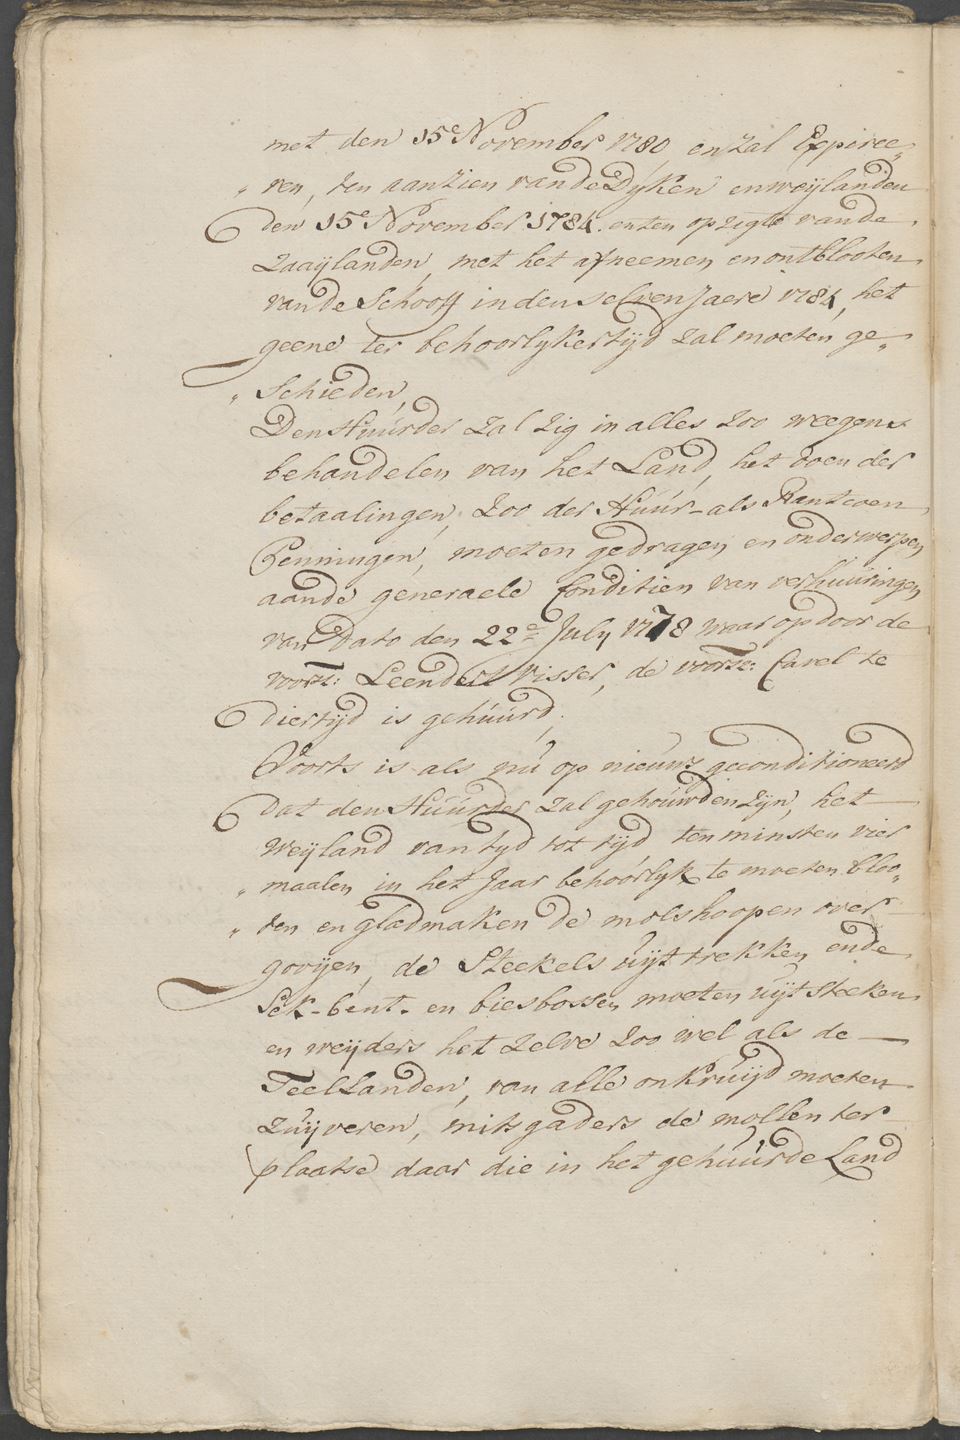 met den 15e November 1780, en zal Expiree„
„ren, ten aanzien van de Dijken en weijlanden
den 15e November 1784. en ten opzigte van de
Zaaijlanden, met het afneemen en ontblooten
van de Schooff in den selven Jaere 1784, het
geene ter behoorlyker tijd zal moeten ge„
„Schieden,
Den Huúrder zal zig in alles zoo weegens
behandelen van het Land, het doen der
betaalingen, zoo der Húúr- als Rantcoen
Penningen, moeten gedragen en onderwerpen
aan de generaele Conditien van verhuúringen
van Dato den 22e July 1778 waar op door de
voorsz: Leendert Visser, de voorsz: Cavel te
dier tijd is gehúúrd,
Voorts is als nú op nieuws geconditioneerd
dat den Húúrder zal gehoúwden zijn, het
Weijland van tyd tot tijd, ten minsten vier
„maalen in het Jaar behoorlyk te moeten bloo„
„ten en gladmaken de molshoopen over
gooijen, de Steekels uijt trekken, en de
Sek- bent- en biesbossen moeten uijt steeken
en weijders het zelve zoo wel als de
Teellanden, van alle onkruijd moeten
zuijveren, mitsgaders de mollen ter
plaatse daar die in het gehúúrde Land